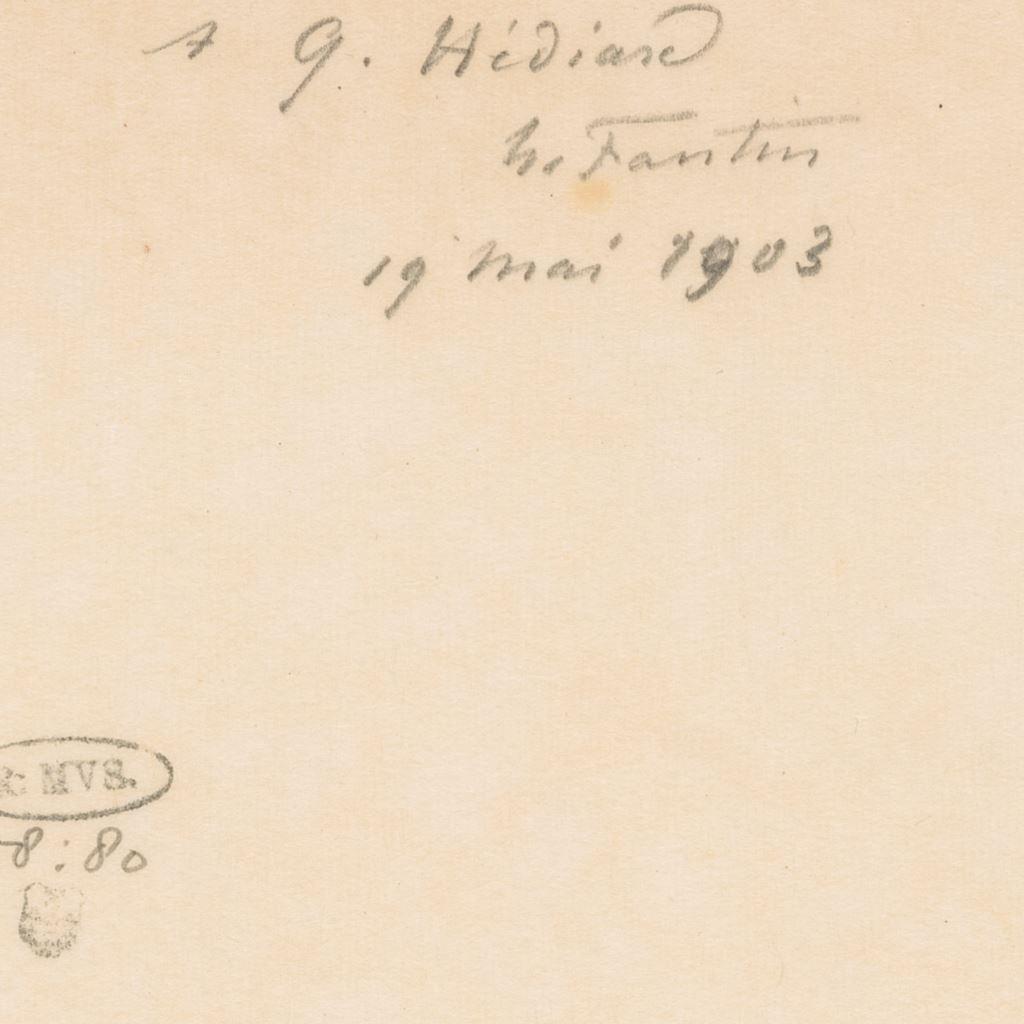 A G. Hédiard
h. Fantin
19 mai 1903
MVS.
8:80